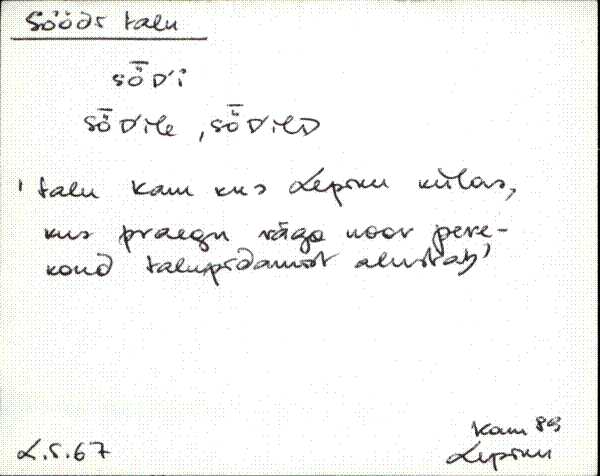 Söödi talu
sȫD'i
sȫD'ile, sȫD'ilD
' talu Kam kus Lepiku külas,
kus praegu väga noor pere-
kond talupidamist alustab'
L.S. 67
Kam 89
Lepiku